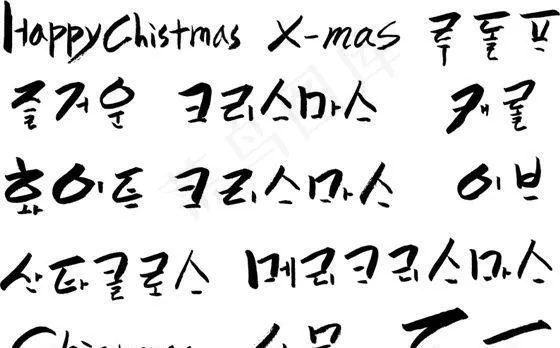 HappyChistmas X-mas 루돌프
즐거운 크리스마스 캐롤
화이트 크리스마스 이브
산타클로스 메리크리스마스